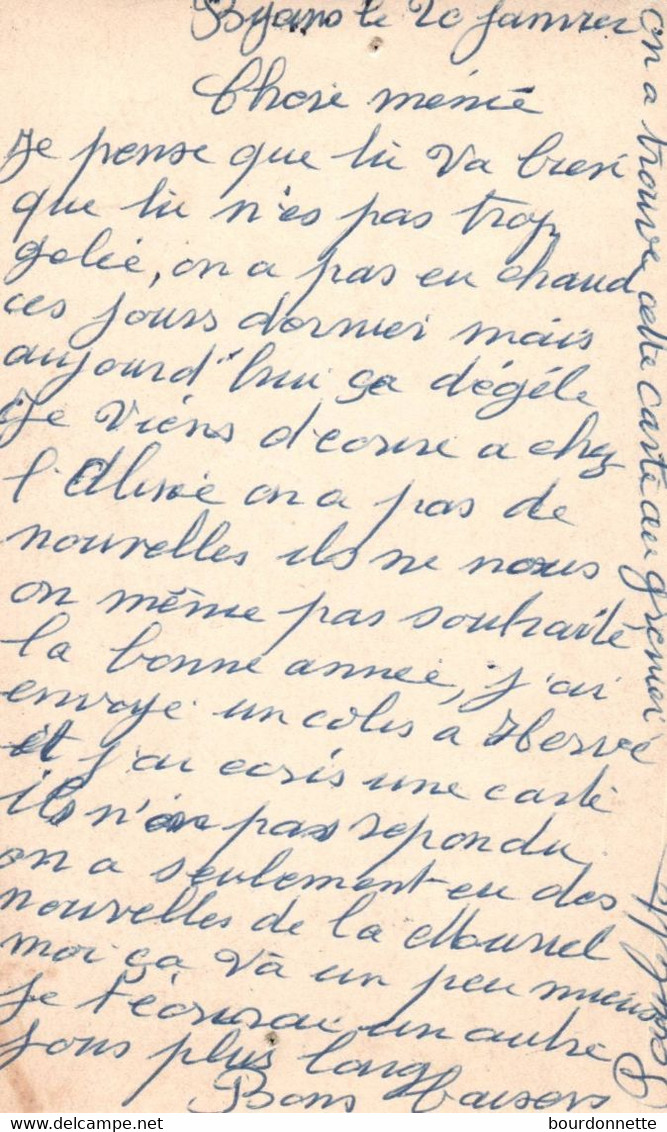 Byans le 20 Janvier
Chere mémé
Je pense que tu va bien
que tu n'es pas trop
gelée, on a pas eu chaud
ces jours dernier mais
aujourd'hui ça dégéle
Je viens d'ecrire a chez
l'Aline on a pas de
nouvelles ils ne nous
on même pas souhaité
la bonne année, j'ai
envoyé un colis a Hervé
et j'ai ecris une carte
ils n'on pas repondu
on a seulement eu des
nouvelles de la Mousel
moi ça va un peu mieux
Je t'écrirai un autre
jour plus long
Bons Baisers
on a trouvé cette carte au grenier
bourdonnette